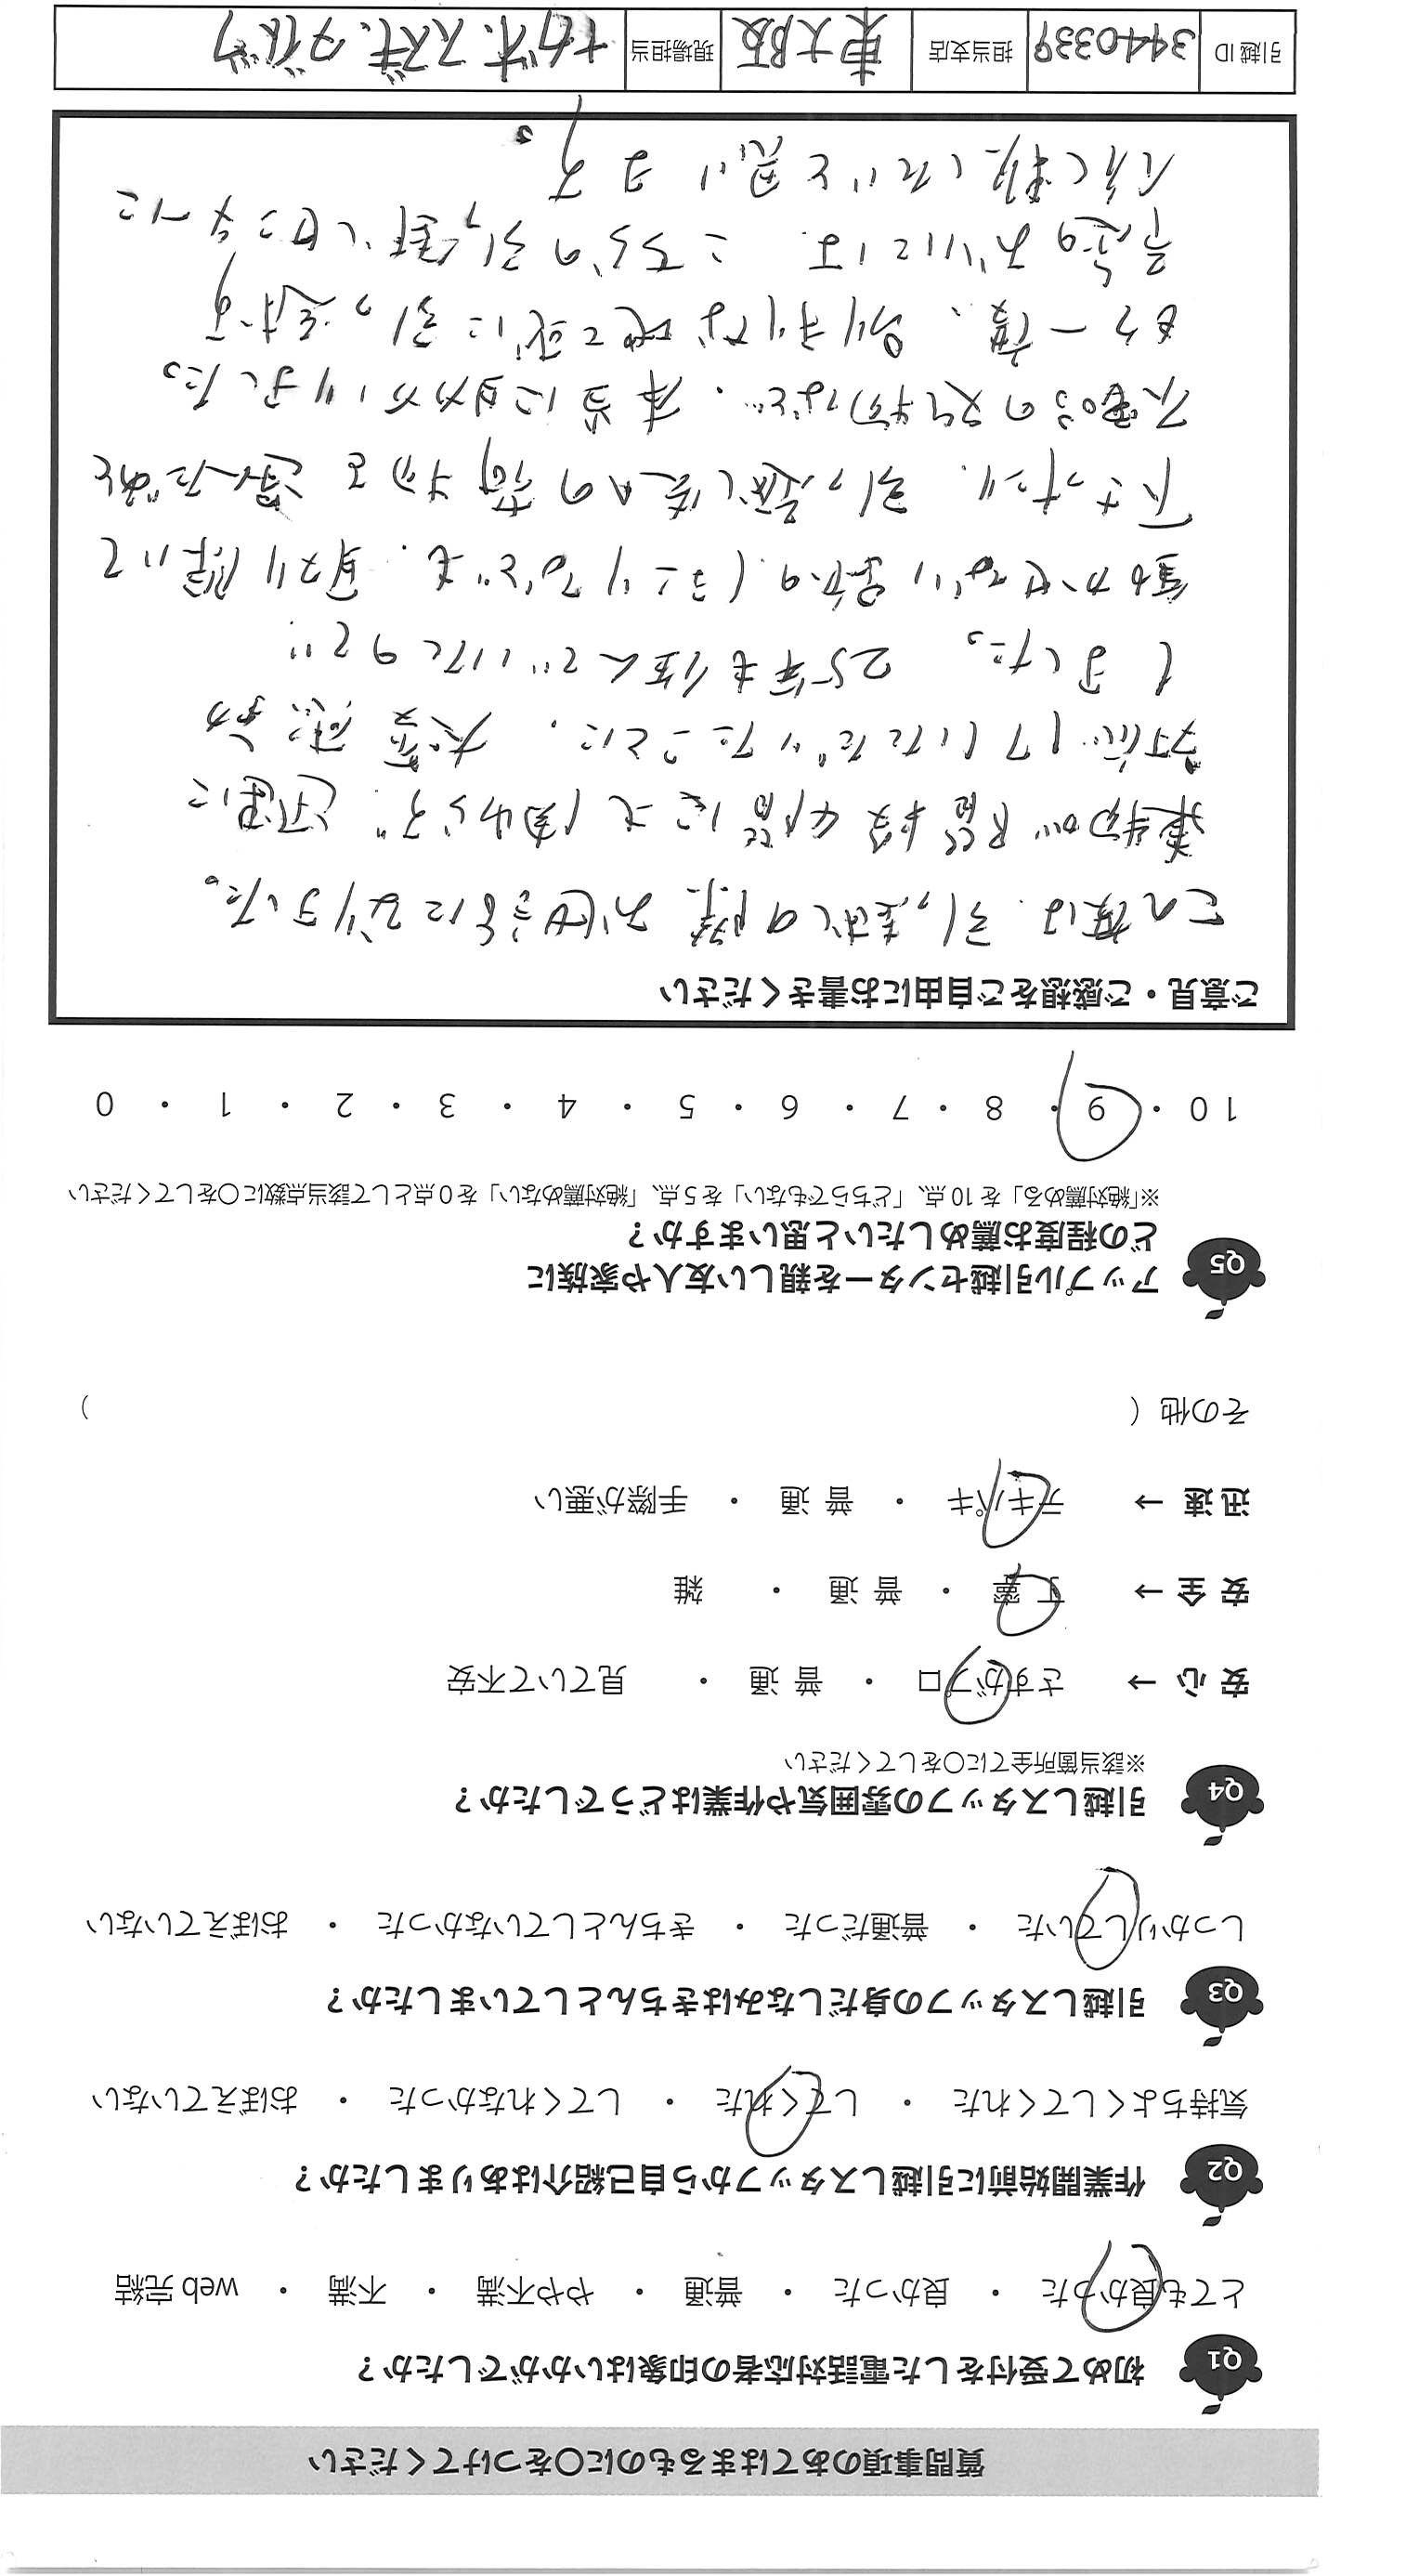 質問事項のあてはまるものに〇をつけてください
Q1 初めて受付をした電話対応者の印象はいかがでしたか？
とても良かった ・ 良かった ・ 普通 ・ やや不満 ・ 不満 ・ web 完結
Q2 作業開始前に引越しスタッフから自己紹介はありましたか？
気持ちよくしてくれた ・ してくれた ・ してくれなかった ・ おぼえていない
Q3 引越しスタッフの身だしなみはきちんとしていましたか？
しっかりしていた ・ 普通だった ・ きちんとしていなかった ・ おぼえていない
Q4 引越しスタッフの雰囲気や作業はどうでしたか？
※該当箇所全てに〇をしてください
安 心 → さすがプロ ・ 普 通 ・ 見ていて不安
安 全 → 丁 寧 ・ 普 通 ・ 雑
迅 速 → テキパキ ・ 普 通 ・ 手際が悪い
その他（ ）
Q5 アップル引越センターを親しい友人や家族に
どの程度お薦めしたいと思いますか？
※「絶対薦める」を 10 点、「どちらでもない」を 5 点、「絶対薦めない」を 0 点として該当点数に〇をしてください
10 ・ 9 ・ 8 ・ 7 ・ 6 ・ 5 ・ 4 ・ 3 ・ 2 ・ 1 ・ 0
ご意見・ご感想をご自由にお書きください
この度は、引っ越しの際、お世話になりました。
業者が 階段 にも関わらず、迅速に
対応していただいたことに、大変感謝
しました。 25年も住んでいたので
動かせない家の ほこりなども、取り除いて
下さったり、引っ越し先への荷物を運んだあと
不電 の など、本当に助かりました。
もう一度、別 な地域に引っ越す
おりには、こちらの引っ越しセンターに
したいと思います。
引越 ID 3440339 担当支店 東大阪 現場担当 ナガオ、スズキ、